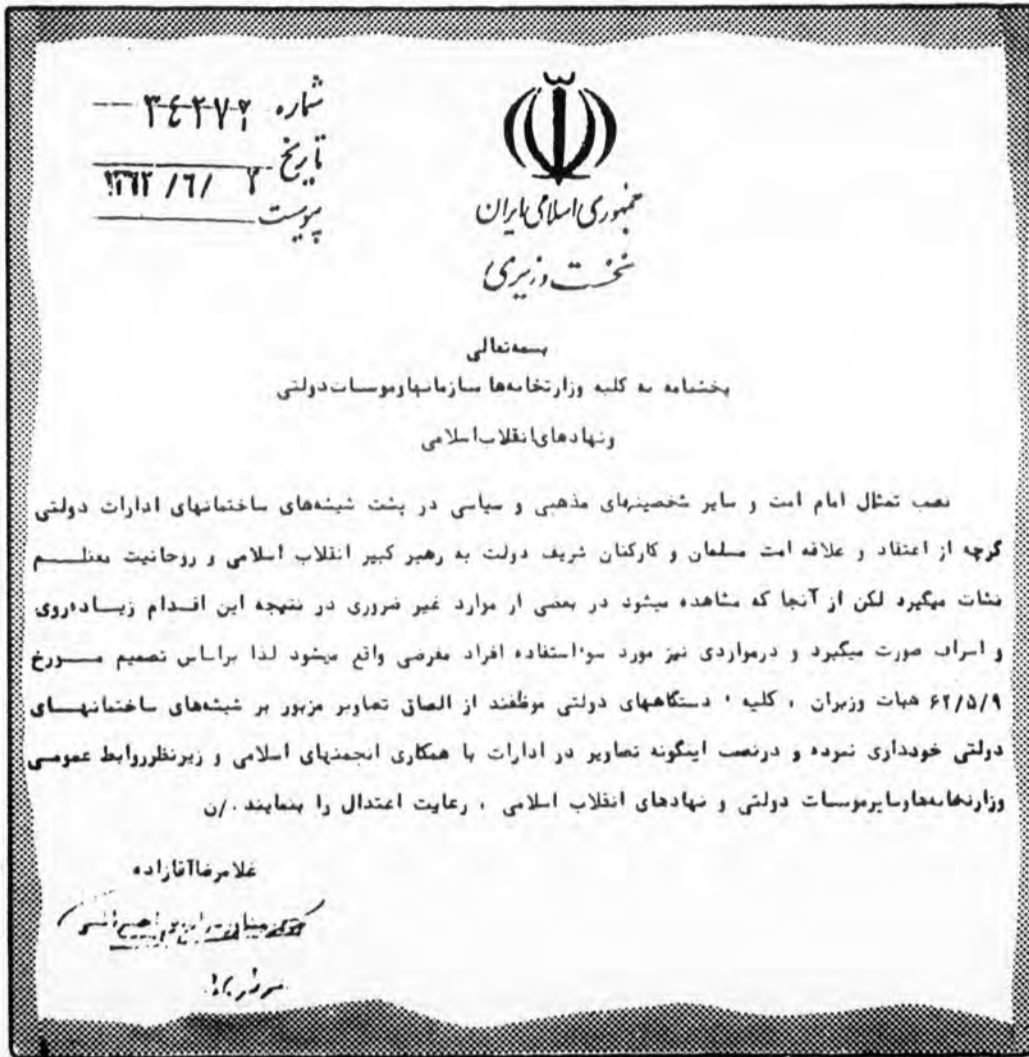 شماره ۳۴۲۷۲
تاریخ ۲ /۶/ ۱۳۶۲
پیوست
جمهوری اسلامی ایران
نخست وزیری
بسمه‌تعالی
بخشنامه به کلیه وزارتخانه‌ها سازمانها وموسسات دولتی
ونهادهای انقلاب اسلامی
نصب تمثال امام امت و سایر شخصیتهای مذهبی و سیاسی در پشت شیشه‌های ساختمانهای ادارات دولتی
گرچه از اعتقاد و علاقه امت مسلمان و کارکنان شریف دولت به رهبر کبیر انقلاب اسلامی و روحانیت معظم
نشات میگیرد لکن از آنجا که مشاهده میشود در بعضی از موارد غیر ضروری در نتیجه این اقدام زیاده‌روی
و اسراف صورت میگیرد و درمواردی نیز مورد سوءاستفاده افراد مغرضی واقع میشود لذا براساس تصمیم مورخ
۶۲/۵/۹ هیات وزیران ، کلیه ء دستگاههای دولتی موظفند از الصاق تصاویر مزبور بر شیشه‌های ساختمانهای
دولتی خودداری نموده و درنصب اینگونه تصاویر در ادارات با همکاری انجمنهای اسلامی و زیرنظرروابط عمومی
وزارتخانه‌هاوسایرموسسات دولتی و نهادهای انقلاب اسلامی ، رعایت اعتدال را بنمایند ./ن
غلامرضاآقازاده